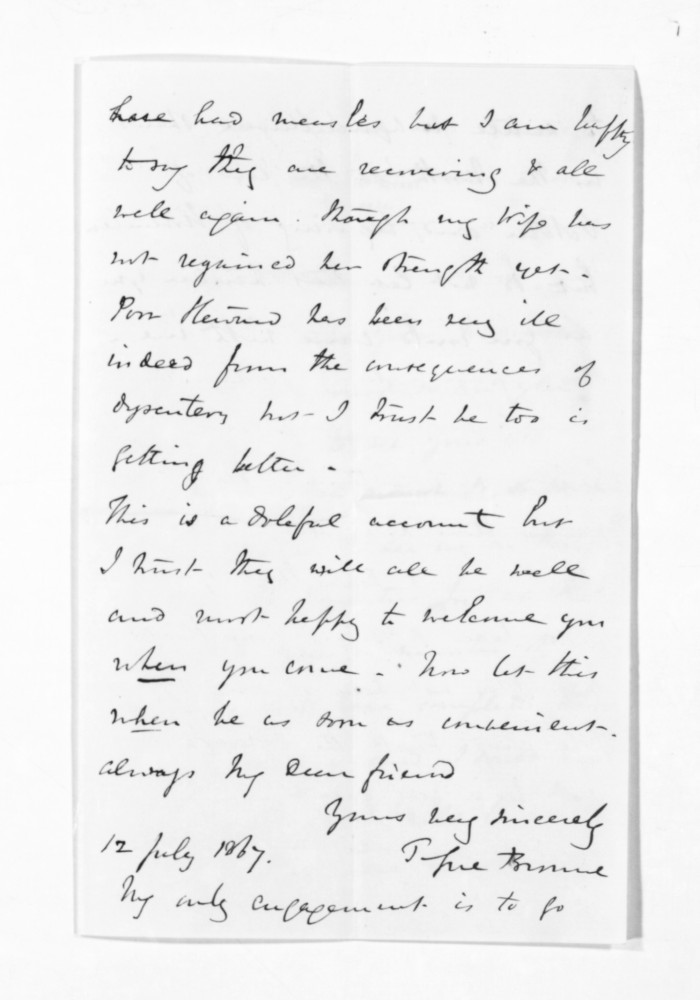 have had measles but I am happy
to say they are recovering & all
well again. though my Wife has
not regained her strength yet.
Poor Harold has been very ill
indeed from the consequences of
dysentery but I trust he too is
getting better.
This is a doleful account but
I trust they will all be well
and most happy to welcome you
when you come. Now let this
when be as soon as convenient.
always My Dear friend
Yours very sincerely
12 July 1867.
T Gore Browne
My only engagement is to go